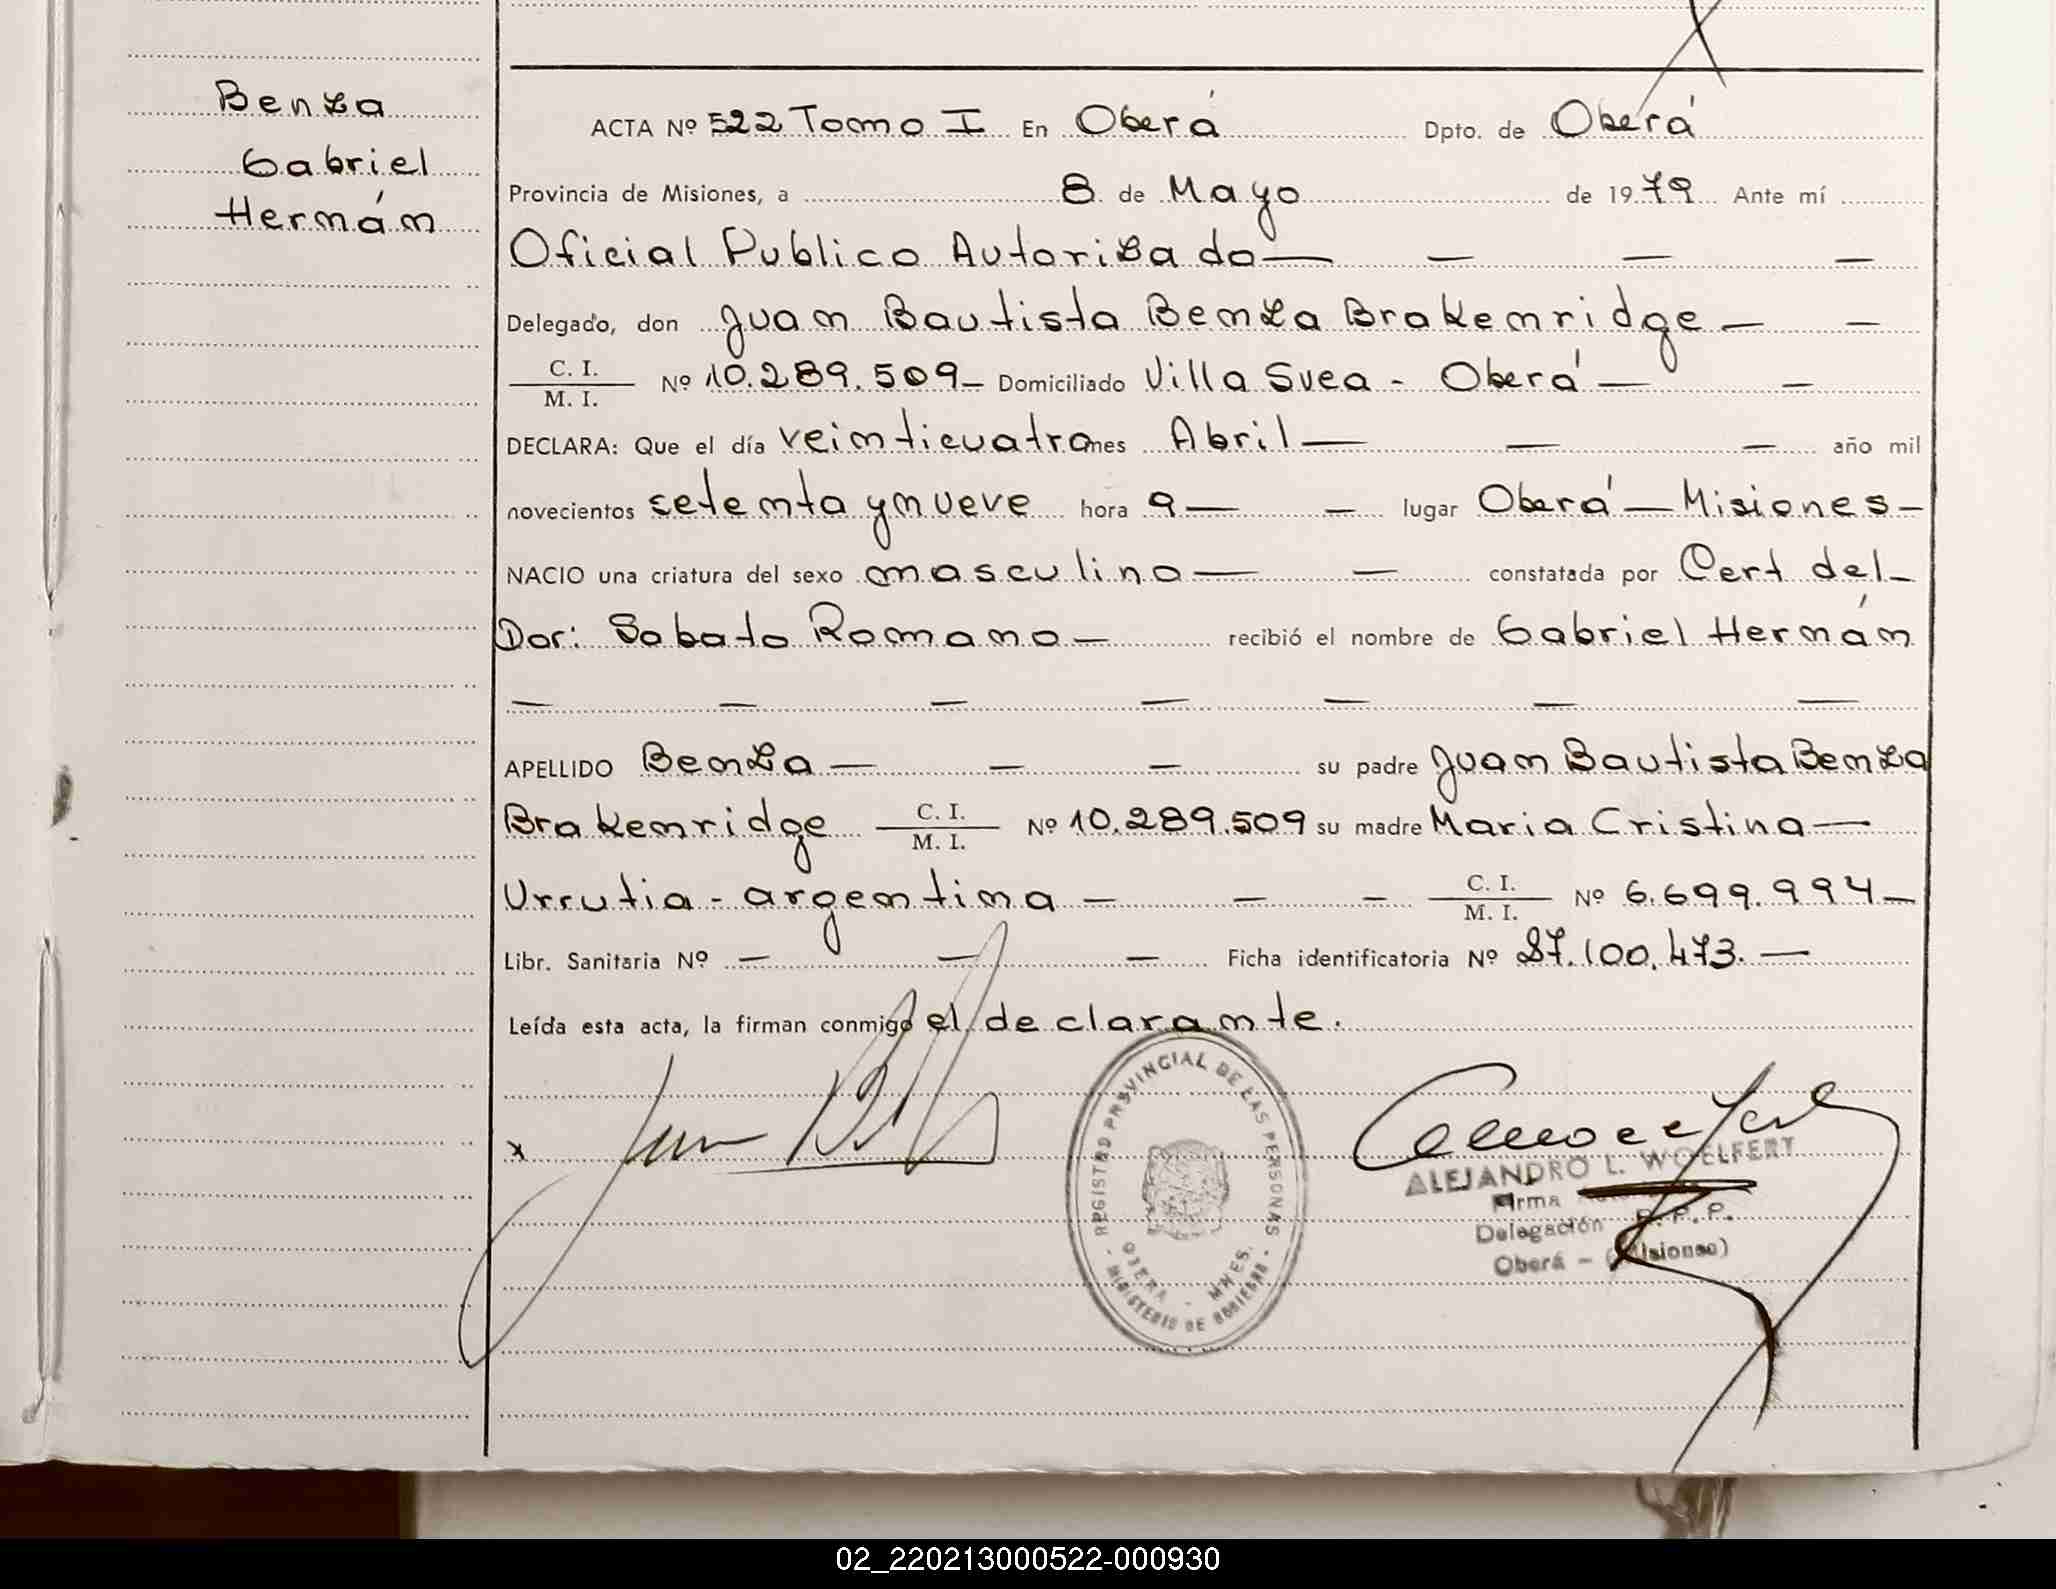 Benza
Gabriel
Hermán
ACTA Nº 522 Tomo I En Oberá Dpto. de Oberá
Provincia de Misiones, a 8 de Mayo de 1979 Ante mí
Oficial Publico Autorizado — — — —
Delegado, don Juan Bautista Benza Brakenridge — —
C. I.
M. I. Nº 10.289.509 — Domiciliado Villa Svea - Oberá — —
DECLARA: Que el día veinticuatro mes Abril — — — año mil
novecientos setenta y nueve hora 9 — — lugar Oberá — Misiones —
NACIO una criatura del sexo masculino — — constatada por Cert del —
Dor: Sabato Romano — recibió el nombre de Gabriel Hermán
— — — — — — —
APELLIDO Benza — — — su padre Juan Bautista Benza
Brakenridge C. I.
M. I. Nº 10.289.509 su madre Maria Cristina —
Urrutia - argentina — — — C. I.
M. I. Nº 6.699.994 —
Libr. Sanitaria Nº — — — Ficha identificatoria Nº 27.100.473. —
Leída esta acta, la firman conmigo el declarante.
x
REGISTRO PROVINCIAL DE LAS PERSONAS
OBERA - MNES.
- MINISTERIO DE GOBIERNO -
ALEJANDRO L. WOELFERT
Firma
Delegación R. P. P.
Oberá - (Misiones)
02_220213000522-000930